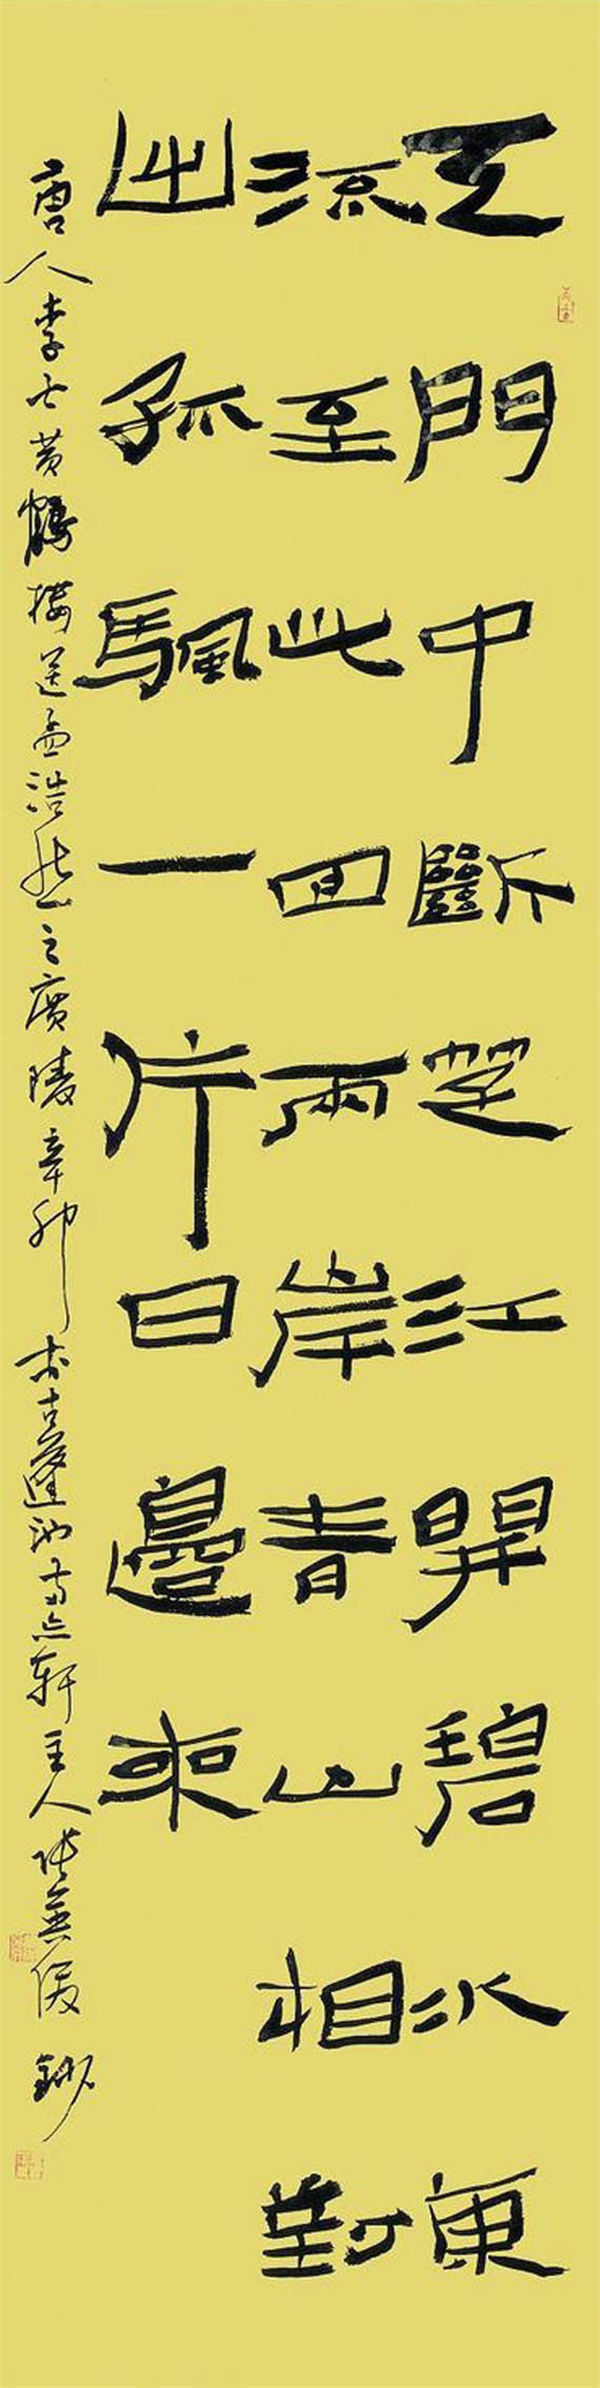 天門中斷楚江開碧水東
流至此回兩岸青山相對
出孤颿一片日邊來
唐人李白黄鶴樓送孟浩然之廣陵辛卯 古蓬池 軒主人 鈔